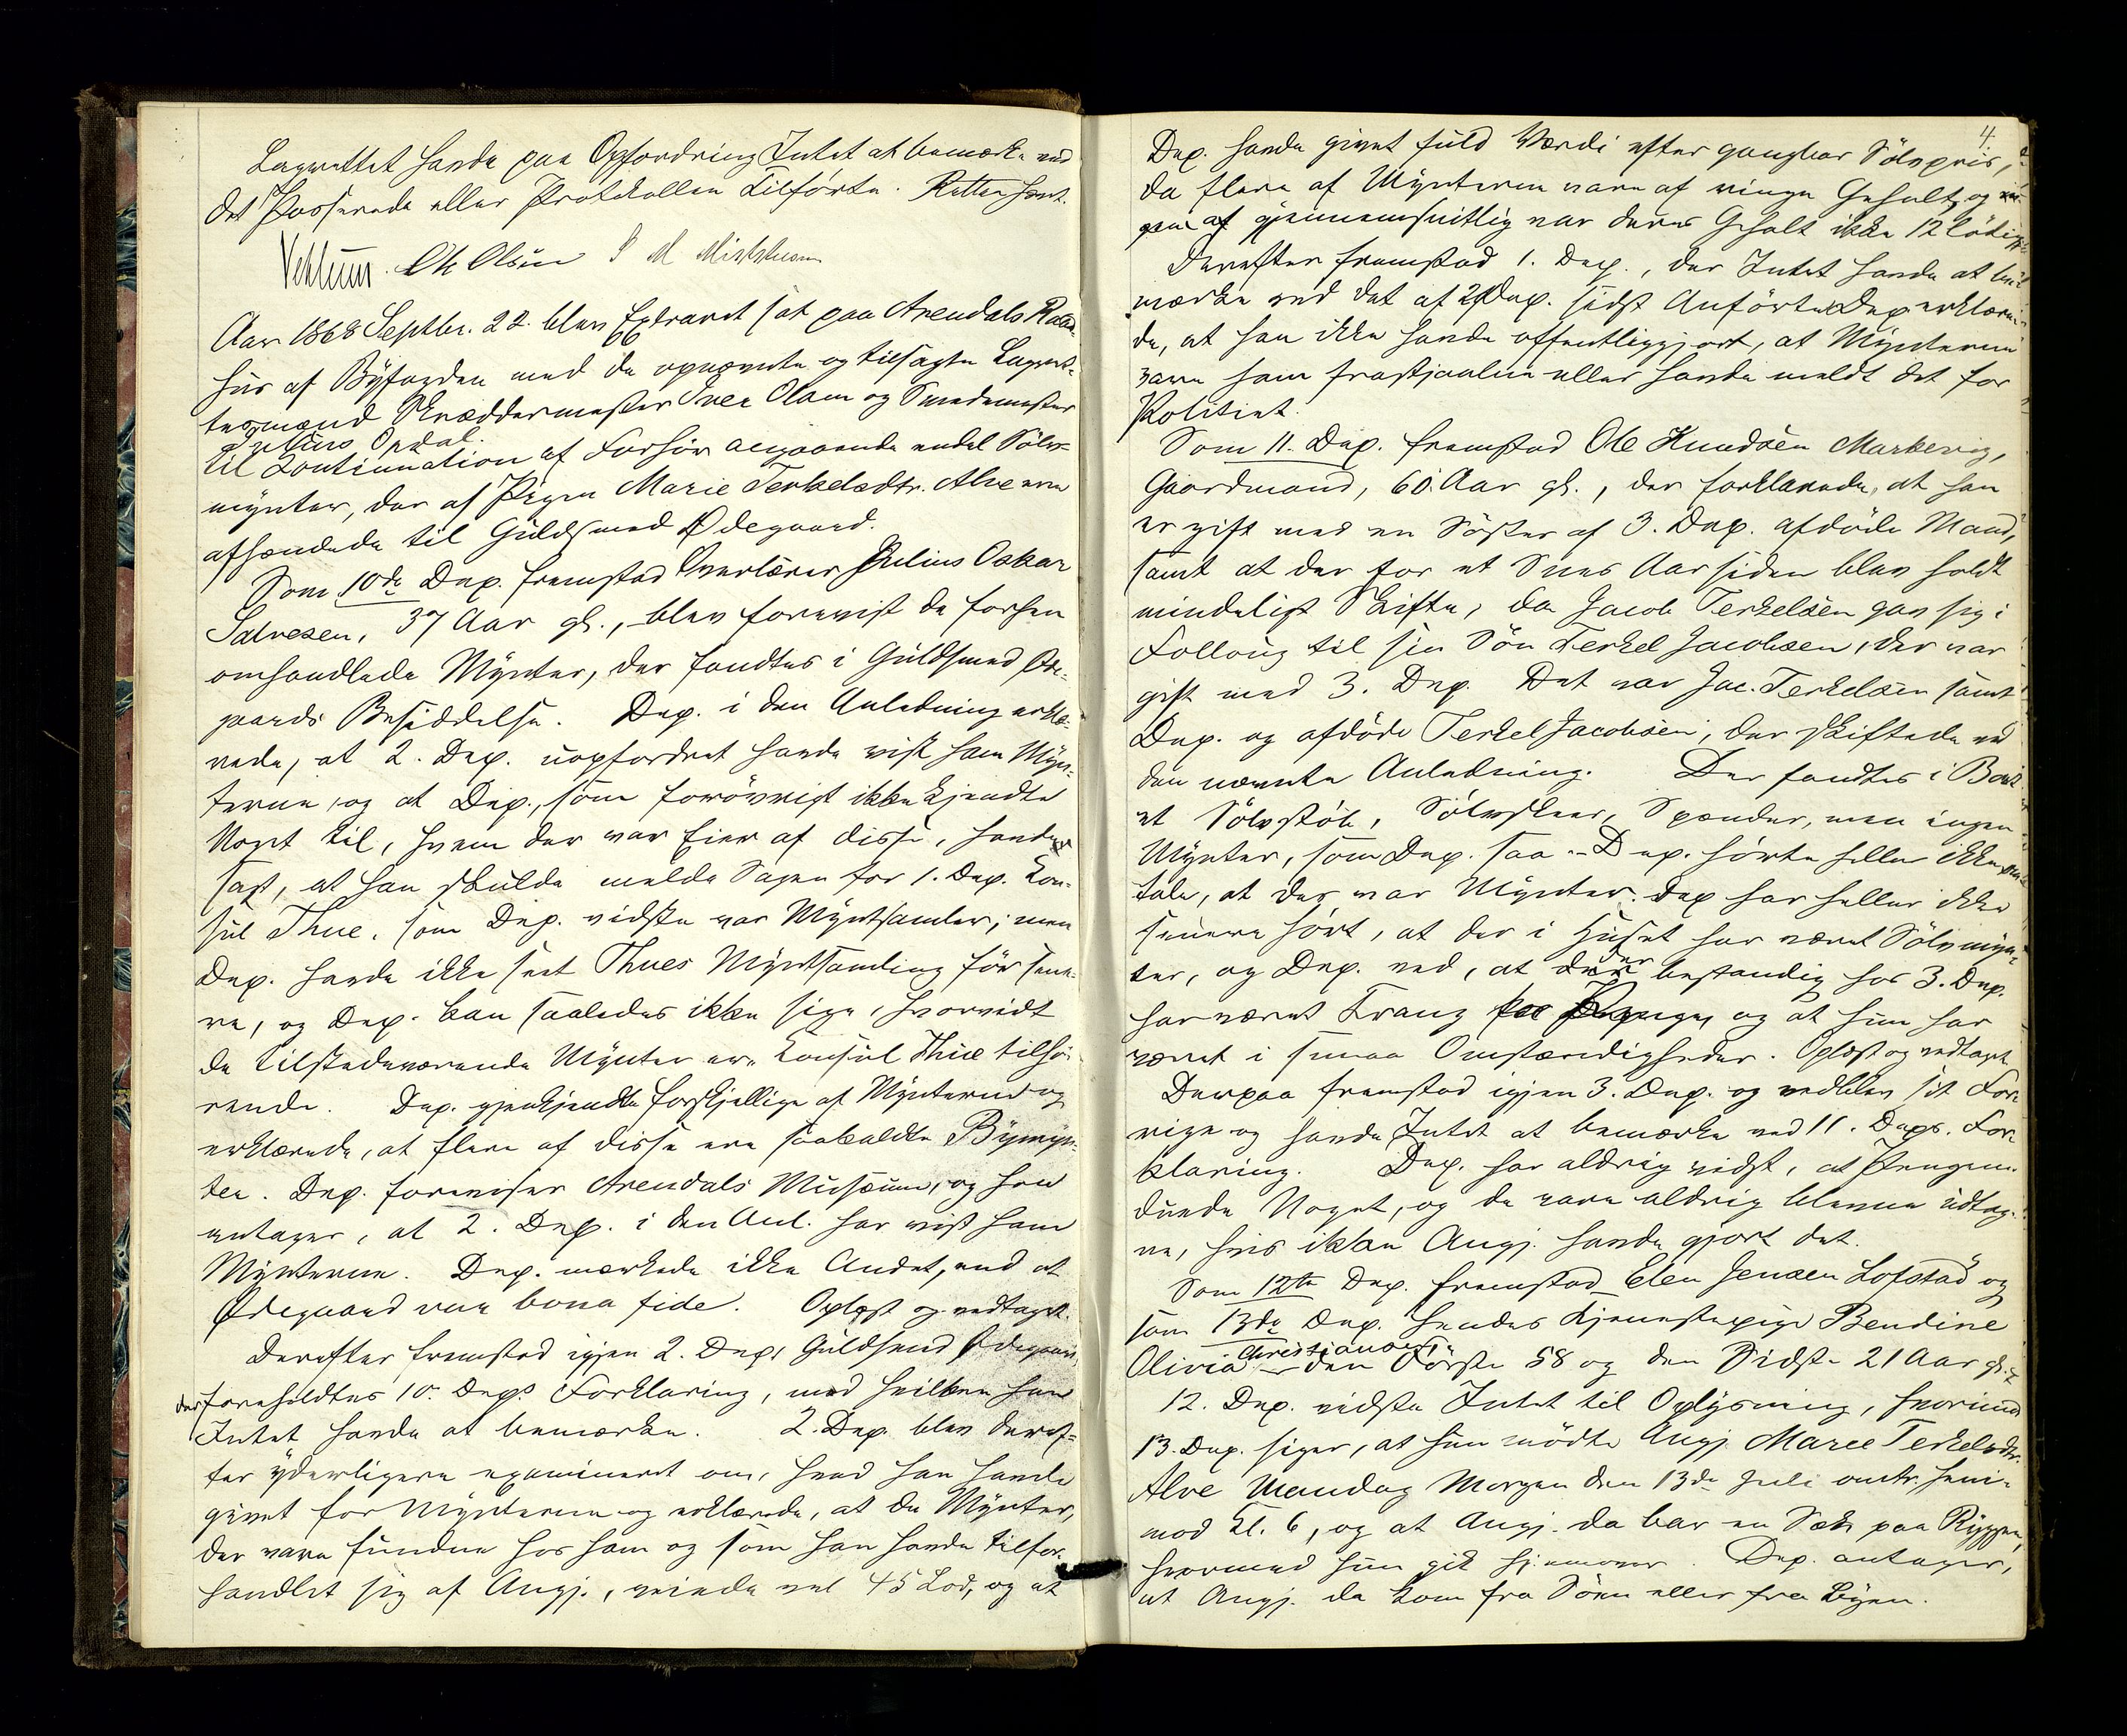 Lagrettet havde paa Opfordring Intet at bemærke ved
det Passerede eller Protokollen Tilførte. Retten hævt.
Ole Olsen
Aar 1868 Septbr. 22. blev Extraret sat paa Arendals Raad-
hus af Byfogden med de opnævnte og tilsagte Lagret-
tesmænd Skræddermester Iver Olsen og Smedemester
Julius Opdal.
til Continuation af Forhør angaaende endel Sølv-
mynter, der af Pigen Marie Terkelsdtr. Alve ere
afhændede til Guldsmed Ødegaard.
Som 10de Dep. fremstod Overlærer Julius Oskar
Salvesen, 37 Aar gl., blev forevist de forhen
omhandlede Mynter, der fandtes i Guldsmed Øde-
gaards Besiddelse. Dep. i den Anledning erklæ-
rede, at 2. Dep. uopfordret havde vist ham Myn-
terne, og at Dep., som forøvrigt ikke kjendte
Noget til, hvem der var Eier af disse, havde
sagt, at han skulde melde Sagen for 1. Dep. Kon-
sul Thue, som Dep. vidste var Myntsamler; men
Dep. havde ikke seet Thues Myntsamling før sene-
re, og Dep. kan saaledes ikke sige, hvorvidt
de tilstedeværende Mynter ere Konsul Thue tilhø-
rende. Dep. gjenkjendte forskjellige af Mynterne og
erklærede, at flere af disse ere saakaldte Bymyn-
ter. Dep. foreviser Arendals Musæum, og han
antager, at 2. Dep. i den Anl. har vist ham
Mynterne. Dep. mærkede ikke Andet, end at
Ødegaard var bona fide. Oplæst og vedtaget.
Derefter fremstod igjen 2. Dep. Guldsmed Ødegaard
der foreholdtes 10. Deps Forklaring, mod hvilken han
Intet havde at bemærke. 2. Dep. blev deref-
ter yderligere examineret om, hvad han havde
givet for Mynterne og erklærede, at de Mynter,
der vare fundne hos ham og som han havde tilfor-
handlet sig af Angj., veiede vel 45 Lod, og at
4.
Dep. havde givet fuld Værdi efter gangbar Sølvpris,
da flere af Mynterne vare af ringe Gehalt, og
gjennemsnitlig var deres Gehalt ikke 12 lødig
Derefter fremstod 1. Dep., der Intet havde at be-
mærke ved det af 2 Dep. sidst Anførte. Dep erklære-
de, at han ikke havde offentliggjort, at Mynterne
vare ham frastjaalne eller havde meldt det for
Politiet.
Som 11. Dep. fremstod Ole Knudsen Markevig,
Gaardmand, 60 Aar gl., der forklarede, at han
er gift med en Søster af 3. Dep. afdøde Mand,
samt at der for et Snes Aar siden blev holdt
mindeligt Skifte, da Jacob Terkelsen gav sig i
Follaug til sin Søn Terkel Jacobsen, der var
gift med 3. Dep. Det var Jac. Terkelsen samt
Dep. og afdøde Terkel Jacobsen, der skiftede ved
den nævnte Anledning. Der fandtes i Boet
et Sølvstøb, Sølvskeer, Spænder, men ingen
Mynter, som Dep. saa. – Dep. hørte heller ikke
tale, at der var Mynter. Dep har heller ikke
senere hørt, at der i Huset har været Sølvmyn-
ter, og Dep. ved, at der bestandig hos 3. Dep.
har været Trang for Penge, og at hun har
været i smaa Omstændigheder. Oplæst og vedtaget
Derpaa fremstod igjen 3. Dep. og vedblev sit For-
rige og havde Intet at bemærke ved 11. Deps. For-
klaring. Dep. har aldrig vidst, at Pengene
duede Noget, og de vare aldrig blevne udtag-
ne, hvis ikke Angj. havde gjort det.
Som 12te Dep. fremstod Elen Jensen Lofstad og
som 13de Dep. hendes Tjenestepige Bendine
Christiansen
Olivia – den Første 58 og den Sidste 21 Aar gl.
12. Dep. vidste Intet til Oplysning, hvorimod
13. Dep. siger, at hun mødte Angj. Maree Terkelsdtr.
Alve Mandag Morgen den 13de Juli omtr. hen i-
mod Kl. 6, og at Angj. da bar en Sæk paa Ryggen,
hvormed hun gik hjemover. Dep. antager,
at Angj. da kom fra Søen eller fra Byen.